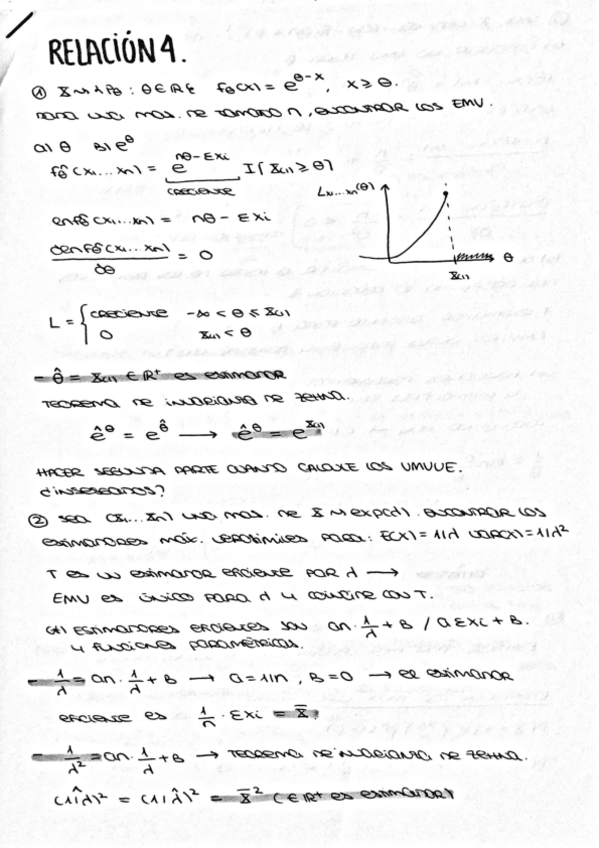 RELACIÓN 4.
① X ~ {Pθ : θ ∈ R} fθ(x) = e^(θ-x), x ≥ θ.
para una mas. de tamaño n, encontrar los EMV.
a) θ b) e^θ
fθ^n (x1...xn) = e^(nθ-Σxi) I{X(1) ≥ θ}
creciente
Lx1...xn(θ)
ln fθ^n (x1...xn) = nθ - Σxi
∂ln fθ^n (x1...xn) / ∂θ = 0
θ
X(1)
L = { creciente -∞ < θ ≤ X(1)
0 X(1) < θ
- θ̂ = X(1) ∈ R+ es estimador
Teorema de invarianza de Zehna.
ê^θ = e^θ̂ → ê^θ = e^X(1)
HACER SEGUNDA PARTE CUANDO CALCULE LOS UMVUE.
¿insesgados?
② Sea (X1...Xn) una mas. de X ~ exp(λ). Encontrar los
estimadores máx. verosímiles para: E(X) = 1/λ Var(X) = 1/λ²
T es un estimador eficiente por λ →
EMV es único para λ y coincide con T.
Estimadores eficientes son an·1/λ + B / aΣxi + B.
y funciones paramétricas.
- 1/λ = an·1/λ + B → a = 1/n, B = 0 → el estimador
eficiente es 1/n · Σxi = X̄
- 1/λ² = an·1/λ + B → Teorema de invarianza de Zehna.
(1/λ̂)² = (1/λ̂)² = X̄² (∈ R+ es estimador)